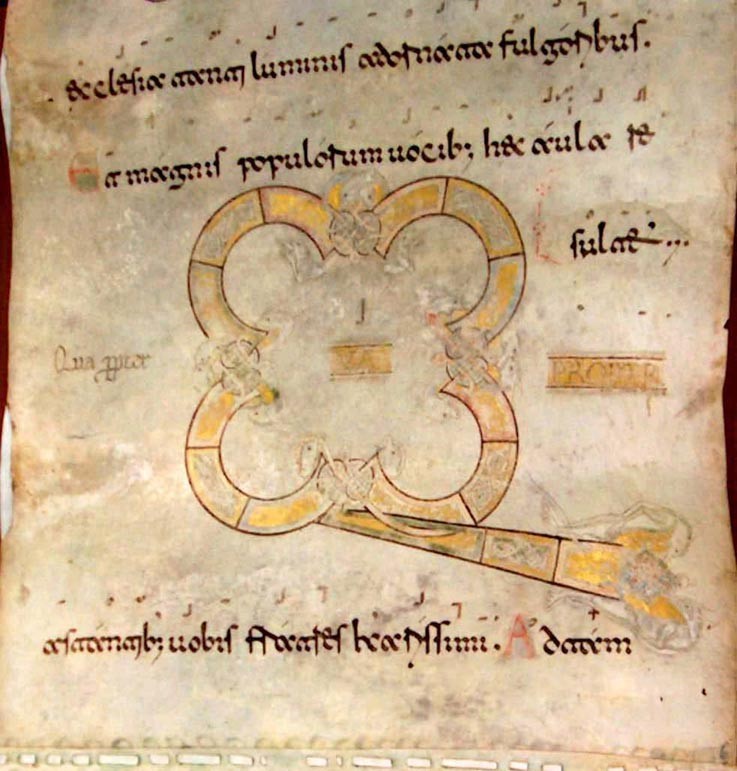 ecclesia tanti luminis adornata fulgoribus.
Et magnis populorum uocib; hec aula re
sultet
Qua ppter UA PROPTER
astantib; uobis fratres karissimi. Ad tam